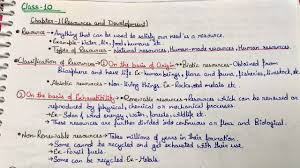 Class-10
Chapter-1(Resources and Development)
• Resource → Anything that can be used to satisfy our need is a resource.
→ Example- Water, Air, food, humans etc.
→ Types of Resources - Natural resources, Human-made resources, Human resources.
• Classification of Resources → ① On the basis of Origin → Biotic resources-Obtained from
Biosphere and have life. Ex- human beings, flora and fauna, fisheries, livestock, etc
→ Abiotic resources- Non-living things. Ex- Rocks and metals etc
② On the basis of Exhaustibility → Renewable resources → Resources which can be renewed or
reproduced by physical, chemical or mechanical processes
→ Ex- Solar & wind energy, water, forests, wildlife etc.
→ These resources are further divided into continuous or flow and Biological.
→ Non-Renewable resources → Takes millions of years in their formation
→ Some cannot be recycled and get exhausted with their use.
→ Ex- Fossil fuels
→ Some can be recycled Ex- Metals.